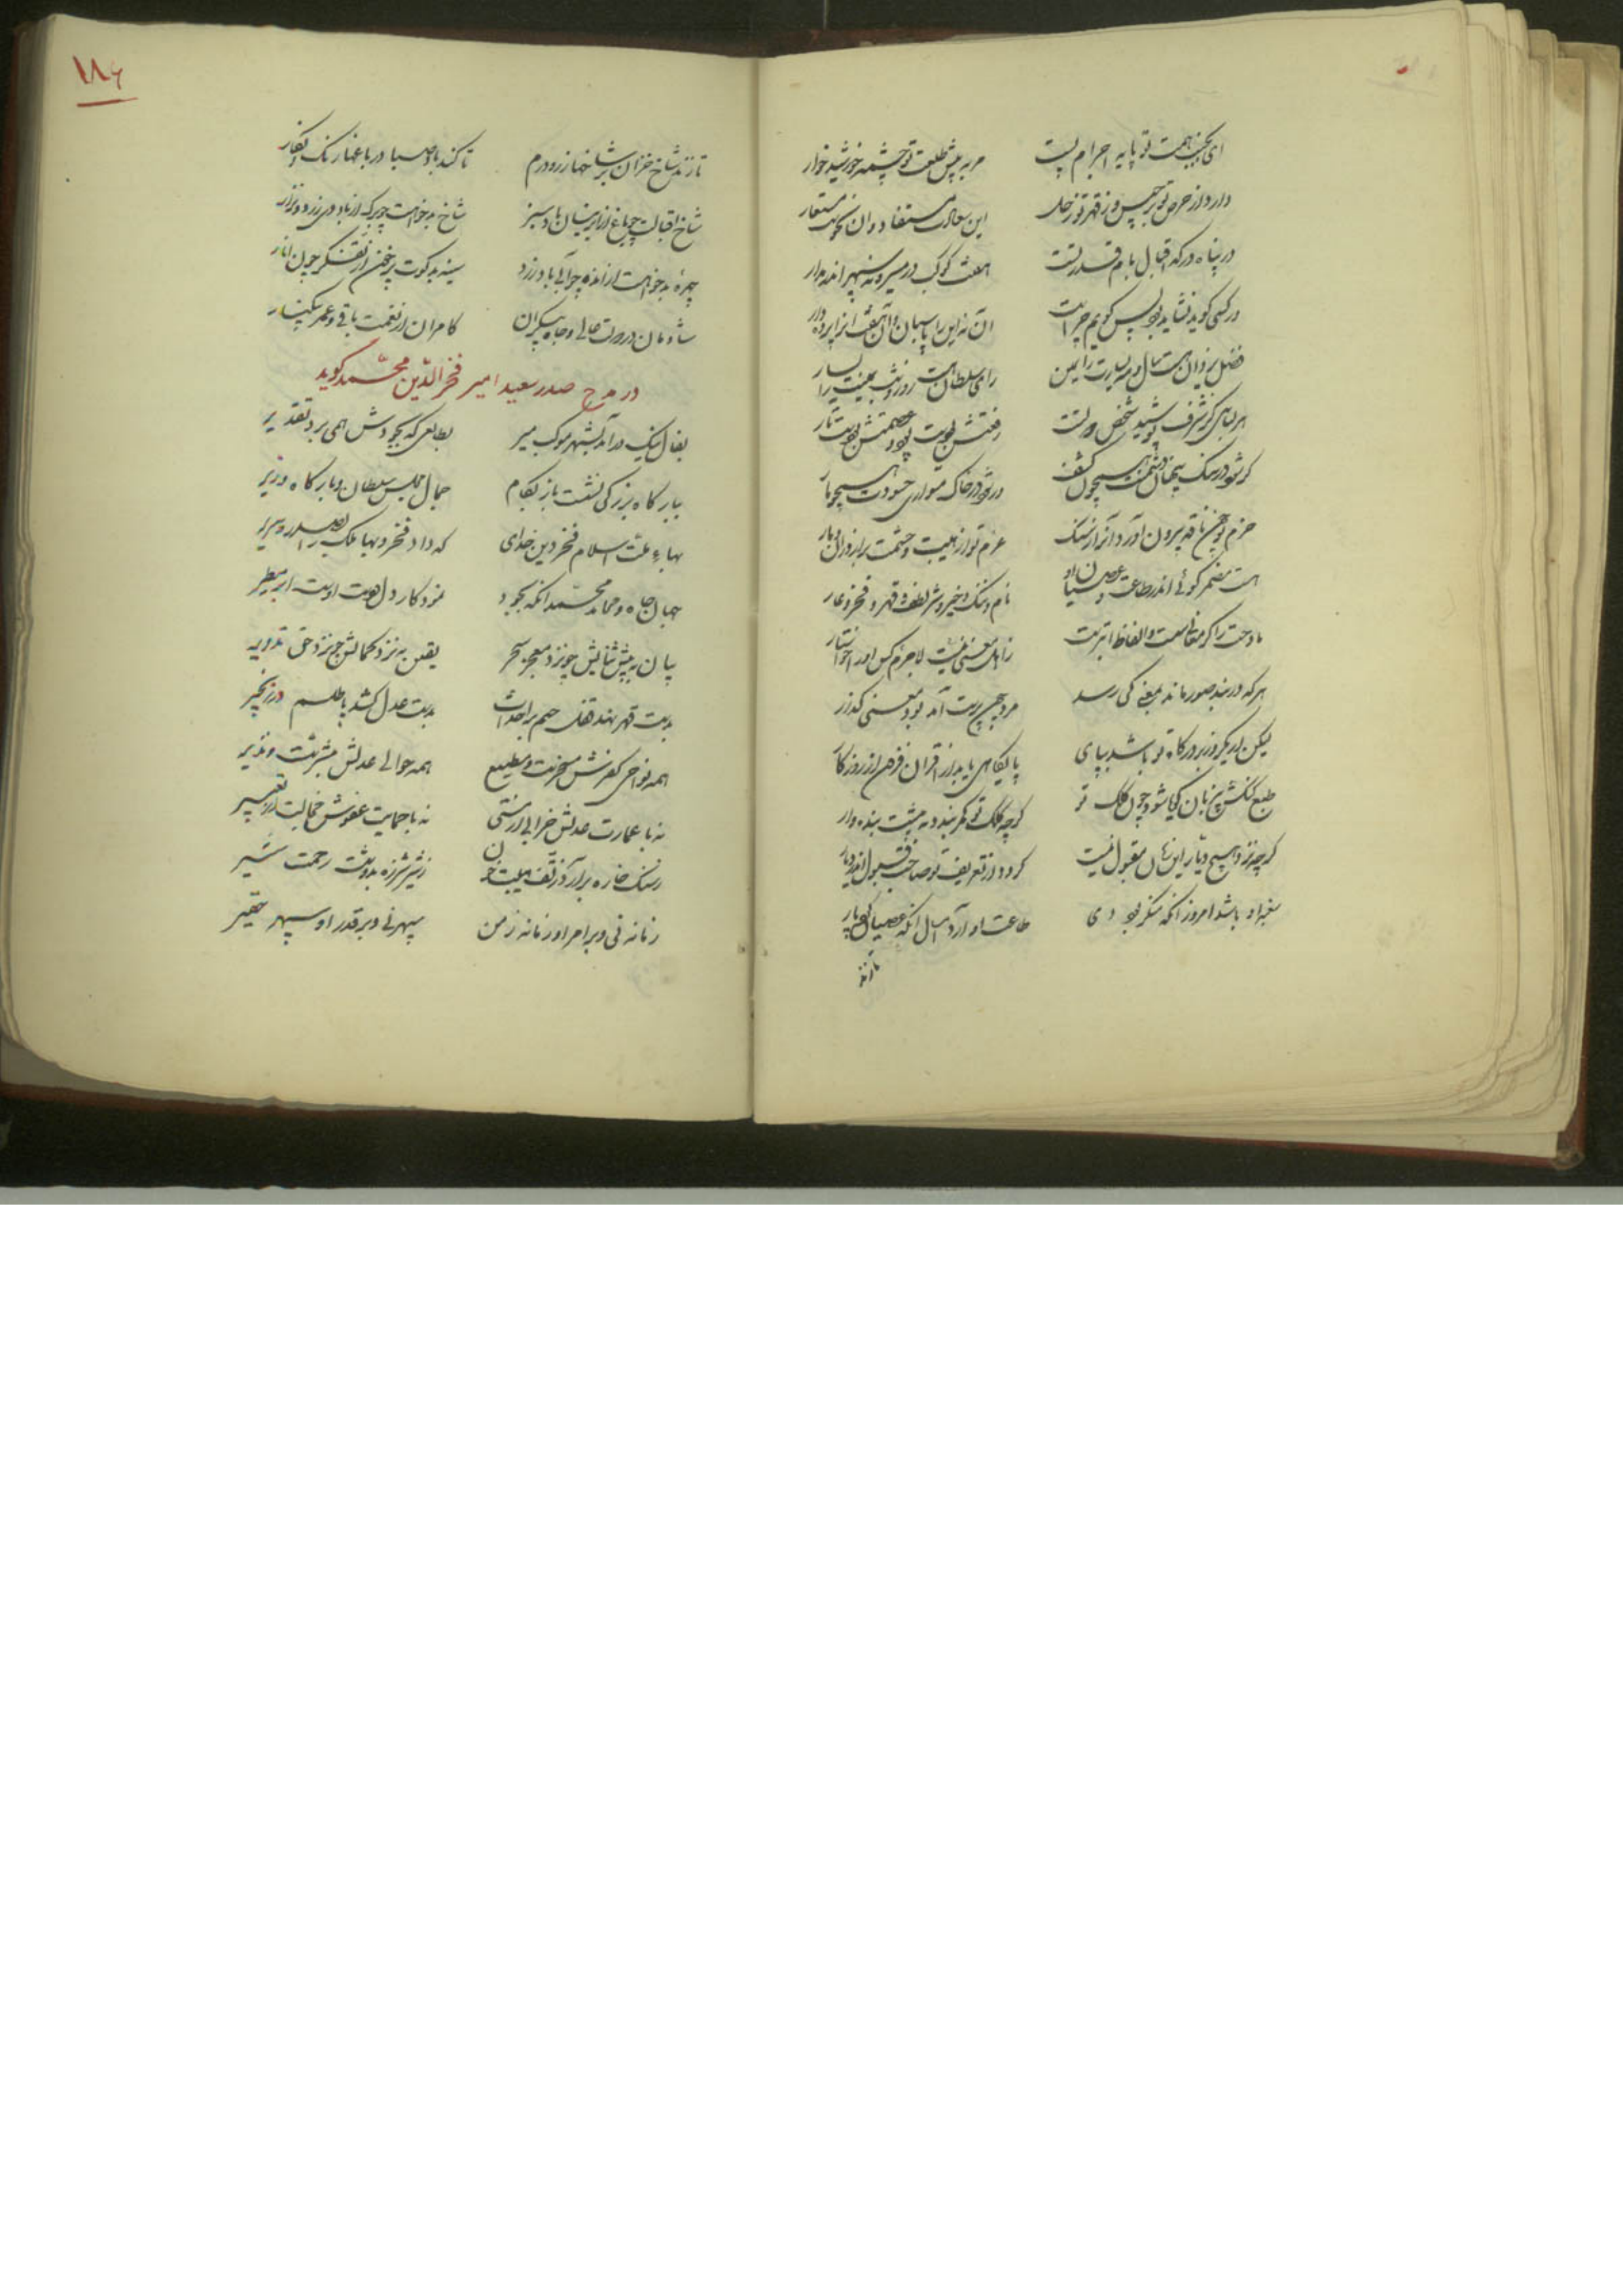 ای بجنب همت تو پایه اجرام پست
وی به پیش طلعت تو چشمه خورشید خوار
دارد از حرص تو برجیس و ز قهر تو زحل
این سعادت مستفاد و ان نحوست مستعار
در پناه درکه اقبال بام قدر تست
هفت کوکب در مسیر و نه سپهر اندر مدار
در کسی کوید نشاید بود پس کویم چراست
ان نه این را پاسبان و آن هفت انرا پرده دار
فضل یزدان هست سال و مه یسارت را یمین
رای سلطان هست روز و شب یمینت را یسار
هر لباسی کز شرف پوشید شخص دولتت
رفعتش بودست پود و عصمتش بودست تار
کر شود در سنک پنهان دشمنت همچون کشف
ور شود در خاک متواری حسودت همچو مار
حزم تو چون ناقه بیرون آورد آنرا ز سنک
عزم تو از هیبت و حشمت برآرد زان دمار
هست مضمر کوئی اندر طاعت و عصیان او
نام و ننک و خیر و شر و لطف و قهر و فخر و عار
مادحت را کر معانی سست و الفاظ ابترست
زاهل معنی نیست لاجرم کس اورا خواستار
هر که در بند صور ماند بمعنی کی رسد
مرد چون صورت پرست آمد بود معنی کذار
لیکن ار یکروز بر درکاه تو باشد بپای
پایکاهی یابد از اقران فزون از روزکار
طبع کنکش پر زبان کویا شود چون کلک تو
کرچه کلک تو کمر بندد به پیشت بنده وار
کرچه نزد هیچ دیار این زمان مقبول نیست
کردد از تعریف تو صاحب قبول اندر دیار
سغبه او باشد امروز انکه منکر بود دی
طاعت او آرد امسال انکه عصیان کرد پار
تا زند
۱۸۶
تا زند شاخ خزان بر شاخها زر و درم
تا کند باد صبا در باغها رنک و نکار
شاخ اقبالت چو باغ از ابر نیسان باد سبز
شاخ بدخواهت چو برک از باد دی زرد و نزار
چهرهٔ بدخواهت از اندوه چون آبی باد زرد
سینه بدکوت پر خون از تفکر چون انار
شادمان در دولت عالی و جاه بیکران
کامران از نعمت باقی و عمر بیشمار
در مدح صدر سعید امیر فخر الدین محمد کوید
بفال نیک درآمد بشهر موکب میر
بطالعی که بجودش همی برد تقدیر
ببارکاه بزرکی نشست باز بکام
جمال مجلس سلطان و بارکاه وزیر
بهاء ملت اسلام فخر دین خدای
که داد فخر و بها ملک را بصدر و سریر
جهان جاه و محامد محمد انکه بجود
نمود کار دل و دست اوست ابر مطیر
بیان به پیش ثنایش چو نزد معجزه سحر
یقین به نزد کمالش چو نزد حق تزویر
بدست قهر نهد قفل حسم بر احداث
بدست عدل کشد پای ظلم در زنجیر
همه نواحی کفرش مسخرست و مطیع
همه حوالی عدلش مبشرست و نذیر
نه با عمارت عدلش خرابی از مستی
نه با حمایت عفوش خجالت از تقصیر
ز سنک خاره برآرد ز تف هیبت خون
ز شیر شرزه بدوشد ز رحمت شیر
زمانه نی و بر امر او زمانه زمن
سپهر نی و بر قدر او سپهر حقیر